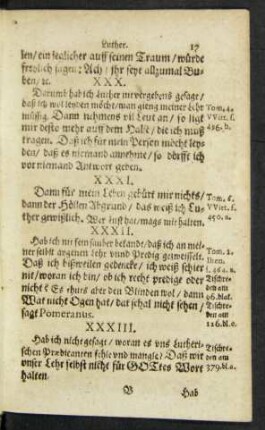 Luther. 17
len/ ein jeglicher auß seinen Traum/ würde
frölich sagen: Ach/ ihr seyt allzumal Bu-
ben/ ꝛc.
XXX.
Darumb hab ich immer vergebens gesagt/
daß ich wol leyden möcht/ man gieng meiner
müssig. Dann nehmens vil leut an/ so ligt
mir desto mehr auff dem Halß/ die ich muß
tragen. Daß ich für mein Person möcht leyd-
den/ daß es niemand annehme/ so dörfft ich
vor niemand Antwort geben.
Tom. 4.
VVitt. f.
XXXI.
Dann für mein Leben gebürt mir nichts/
dann der Höllen Abgrund/ das weiß ich Lu-
ther gewißlich. Wer lust hat/ mags mit halten.
Tom. 6.
VVitt. f.
XXXII.
Hab ich nie kein sauber befande/ daß ich an mei-
ner selbst argenem lehr vnnd Predig gezweiffelt.
Daß ich bißweilen gedencke/ ich weiß schier
nit/ woran ich bin/ ob ich recht predige oder
nicht? Es thuts aber den Blinden wol/ dann
Wat nicht Ogen hat/ dat schal nicht sehen/
sagt Pomeranus.
Tom. 2.
Tischre-
den am
96. blat.
Tischre-
den am
116. bl. c.
XXXIII.
Hab ich nicht gesagt/ woran es vns Lutheri-
schen Predicanten fehle vnd mangle? Daß wir
vnser Lehr selbst nicht für GOttes Wort
halten.
Tischre-
den am
379. bl. a.
B Hab